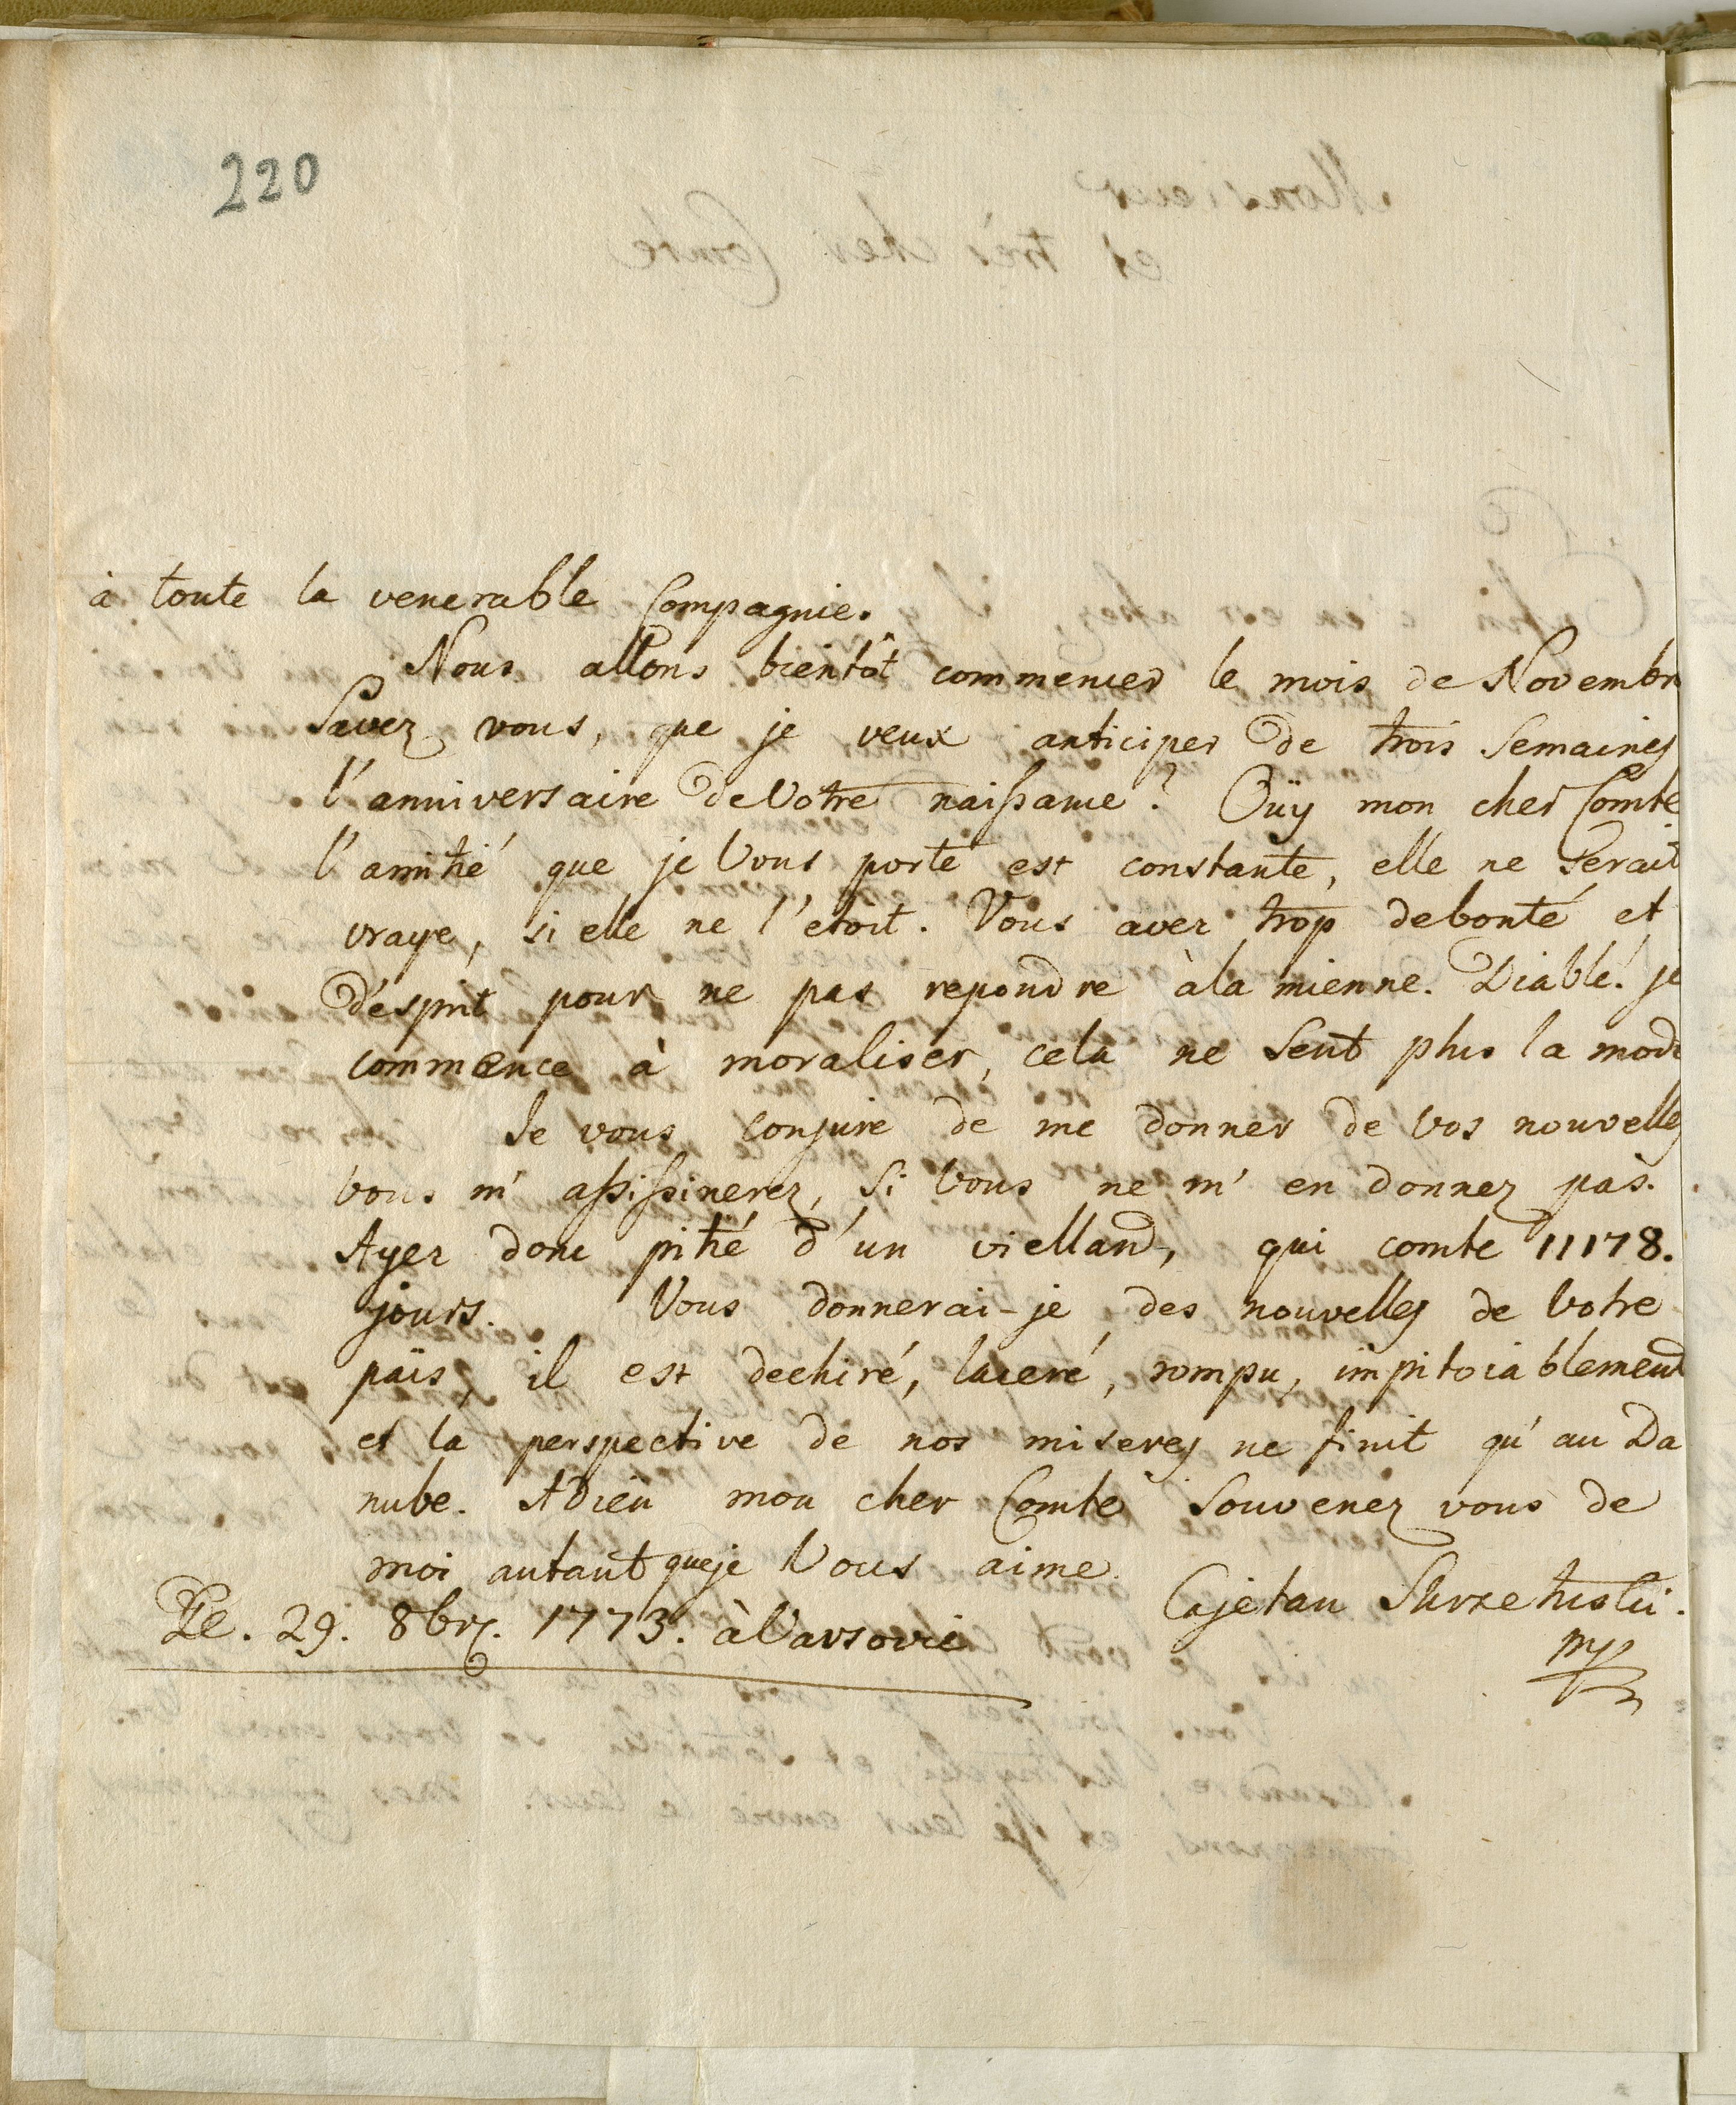 220
à toute la venerable Compagnie.
Nous allons bientôt commencer le mois de Novembr
Savez vous, que je veux anticiper de trois Semaines
l'anniversaire de Votre naissance? Oüy mon cher Comte
l'amitié que je Vous porte est constante, elle ne serait
vraye, si elle ne l'etoit. Vous avez trop de bonté et
d'esprit pour ne pas repondre à la mienne. Diable! je
commence à moraliser, cela ne sent plus la mode
Je vous conjure de me donner de vos nouvelles
vous m'assissinerez, si Vous ne m'en donnez pas.
Ayez donc pitié d'un viellard, qui comte 11178.
jours. Vous donnerai-je des nouvelles de Votre
païs, il est dechiré, laceré, rompu, impitoiablement
et la perspective de nos miseres ne finit qu'au Da
nube. Adieu mon cher Comte souvenez vous de
moi autant que je Vous aime.
Cajetan Skrzetuski.
mp
Le. 29. 8br. 1773. à Varsovie